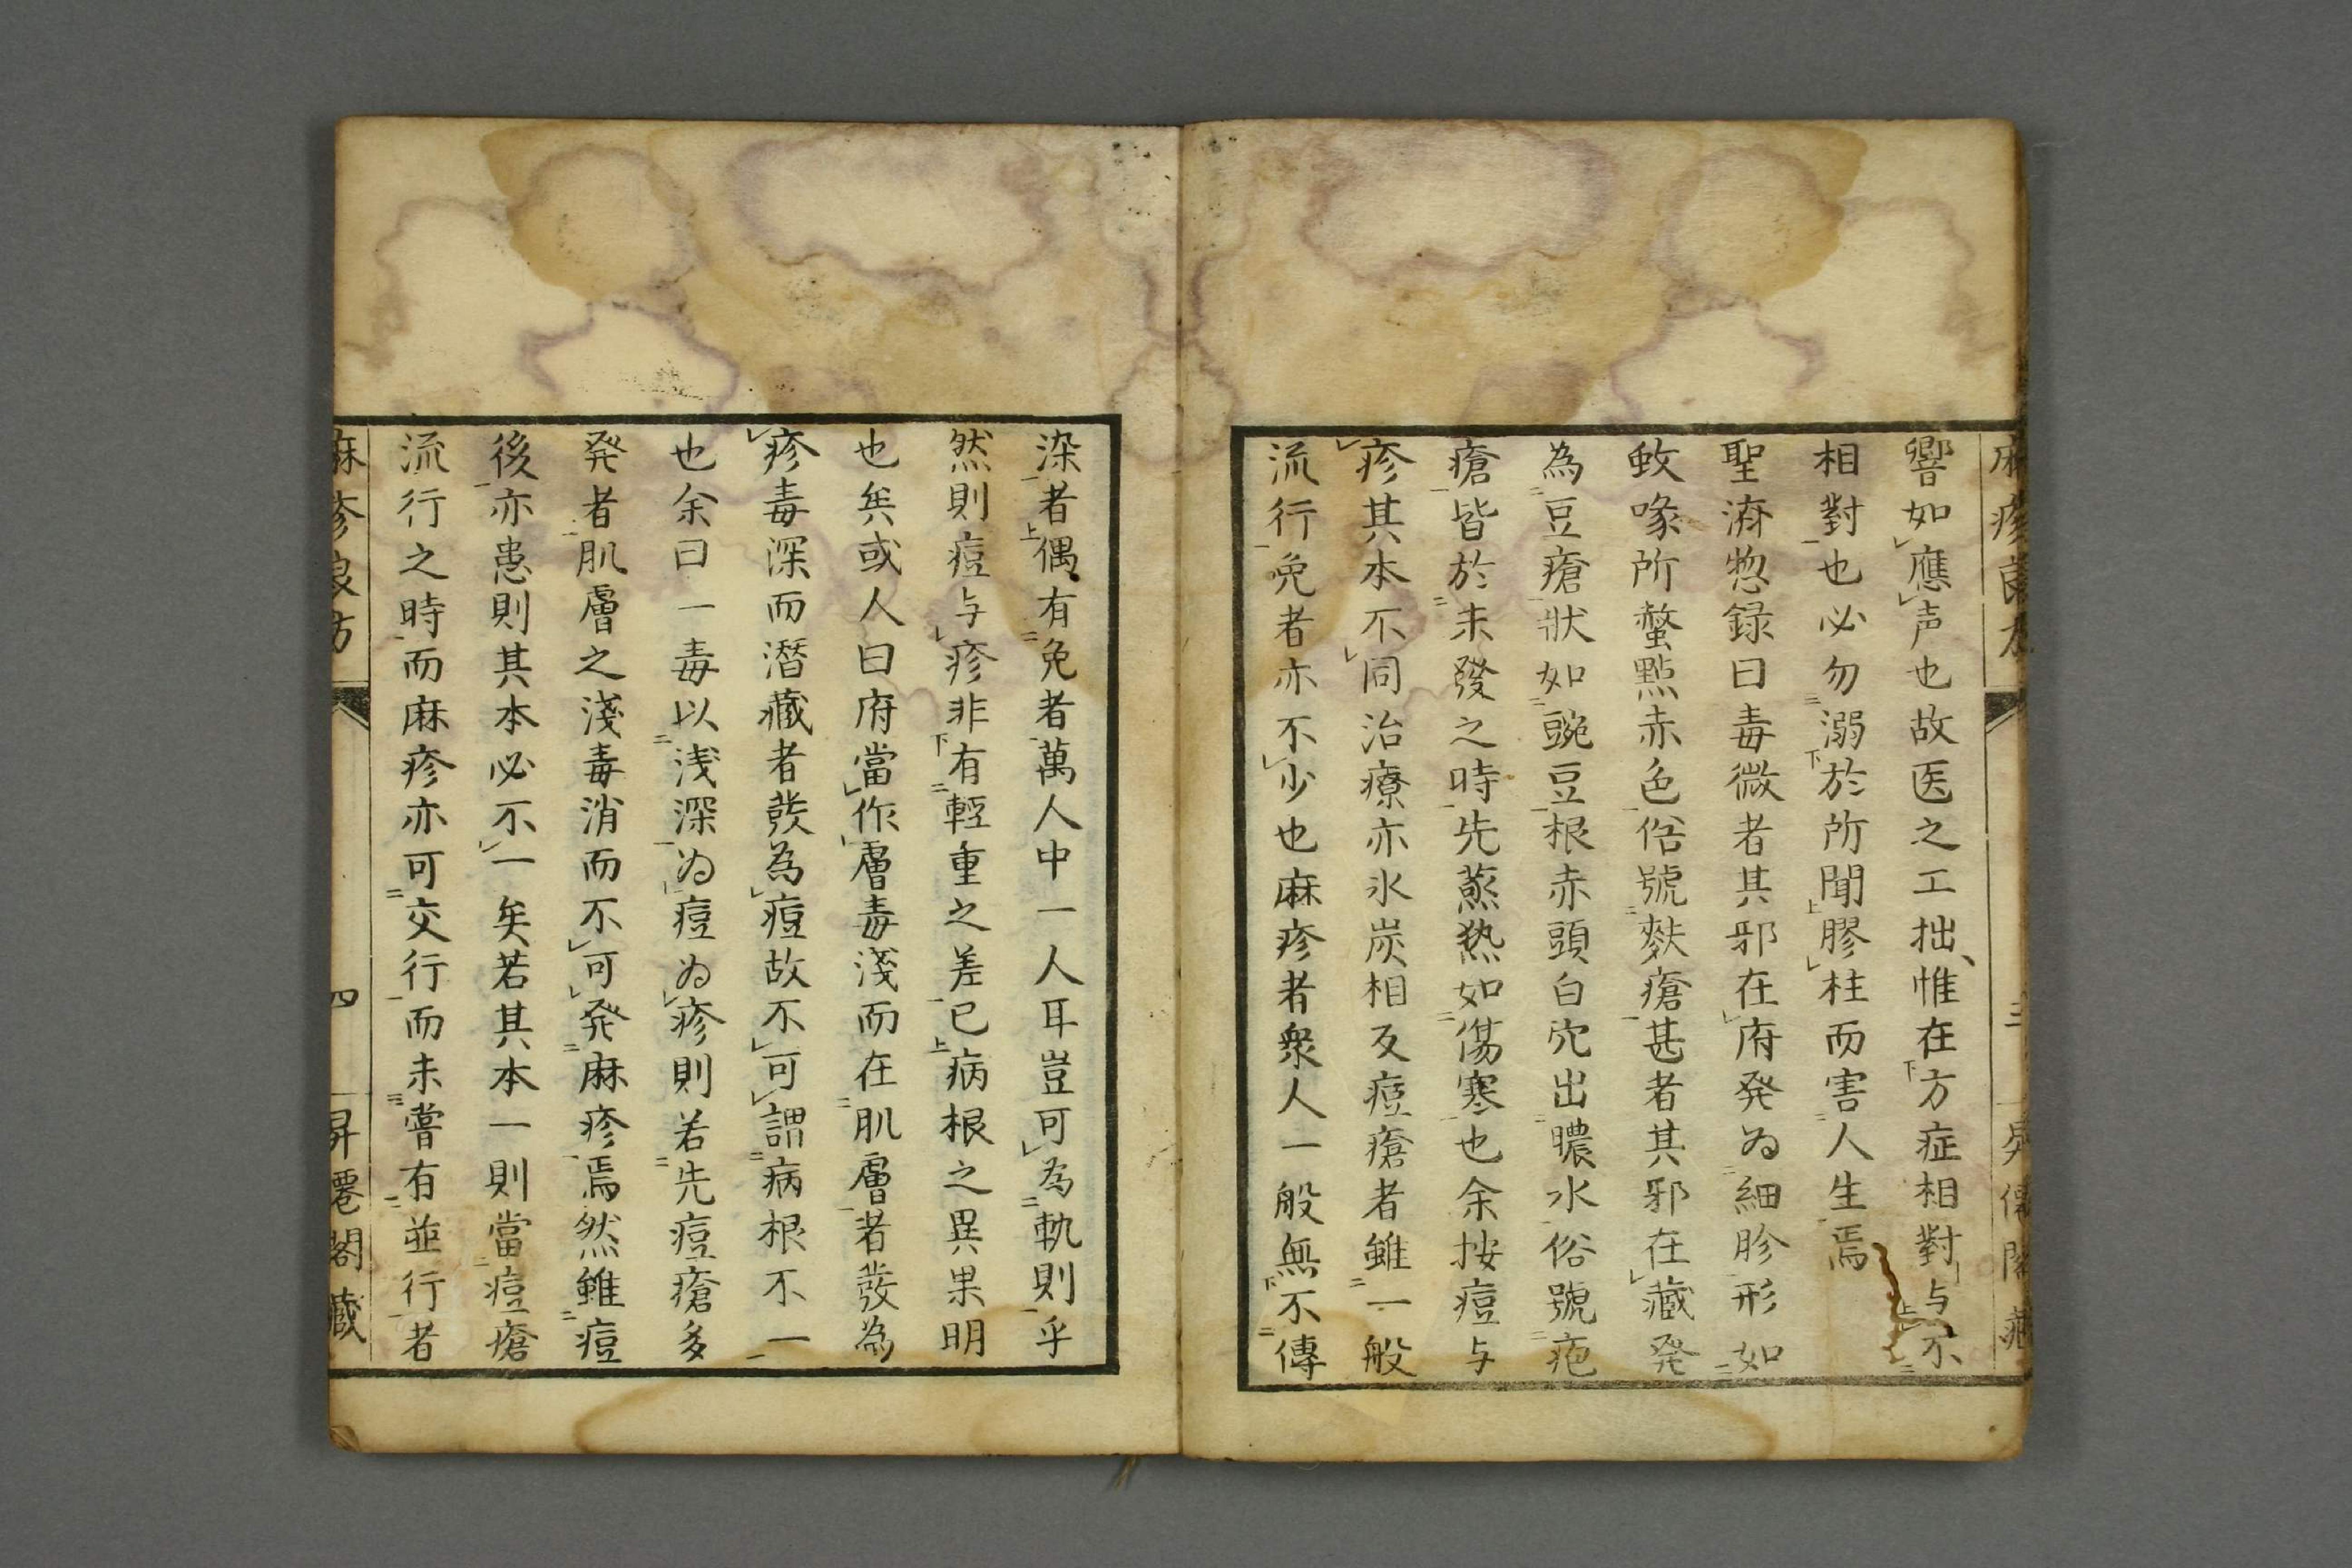 響如應声也故医之工拙惟在方症相對与不
相對也必勿溺於所聞膠柱而害人生焉
聖済惣録曰毒微者其邪在府発為細胗形如
蚊喙所螫點赤色俗號麩瘡甚者其邪在藏発
為豆瘡狀如豌豆根赤頭白穴出膿水俗號疤
瘡皆於未發之時先蒸熱如傷寒也余按痘与
疹其本不同治療亦氷炭相反痘瘡者雖一般
流行免者亦不少也麻疹者衆人一般無不傳
染者偶有免者萬人中一人耳豈可為軌則乎
然則痘与疹非有輕重之差已病根之異果明
也矣或人曰府當作膚毒淺而在肌膚者發為
疹毒深而潛藏者發為痘故不可謂病根不一
也余曰一毒以浅深為痘為疹則若先痘瘡多
発者肌膚之淺毒消而不可発麻疹焉然雖痘
後亦患則其本必不一矣若其本一則當痘瘡
流行之時而麻疹亦可交行而未嘗有並行者
麻疹良方 四 昇遷閣藏